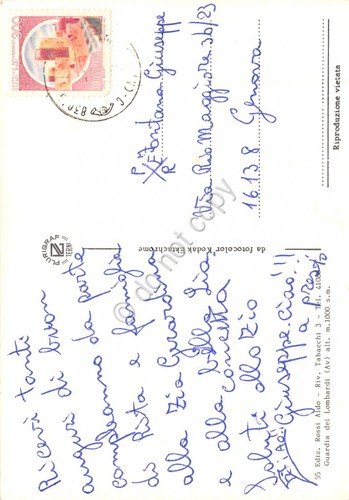 Ricevi tanti
auguri di buon
compleanno da parte
di Rita e famiglia
alla zia Gerardina
e alla bella zia
Concetta
Saluti allo zio
Giuseppe ciao!!!
a presto
Fontana Giuseppe
Via Rio Maggiore 3b/23
16138 Genova
55 Ediz. Rossi Aldo - Riv. Tabacchi 3 - Tel. 410
Guardia dei Lombardi (Av) alt. m. 1000 s.m.
PLURIGRAF
TERNI
da fotocolor Kodak Ektachrome
Riproduzione vietata